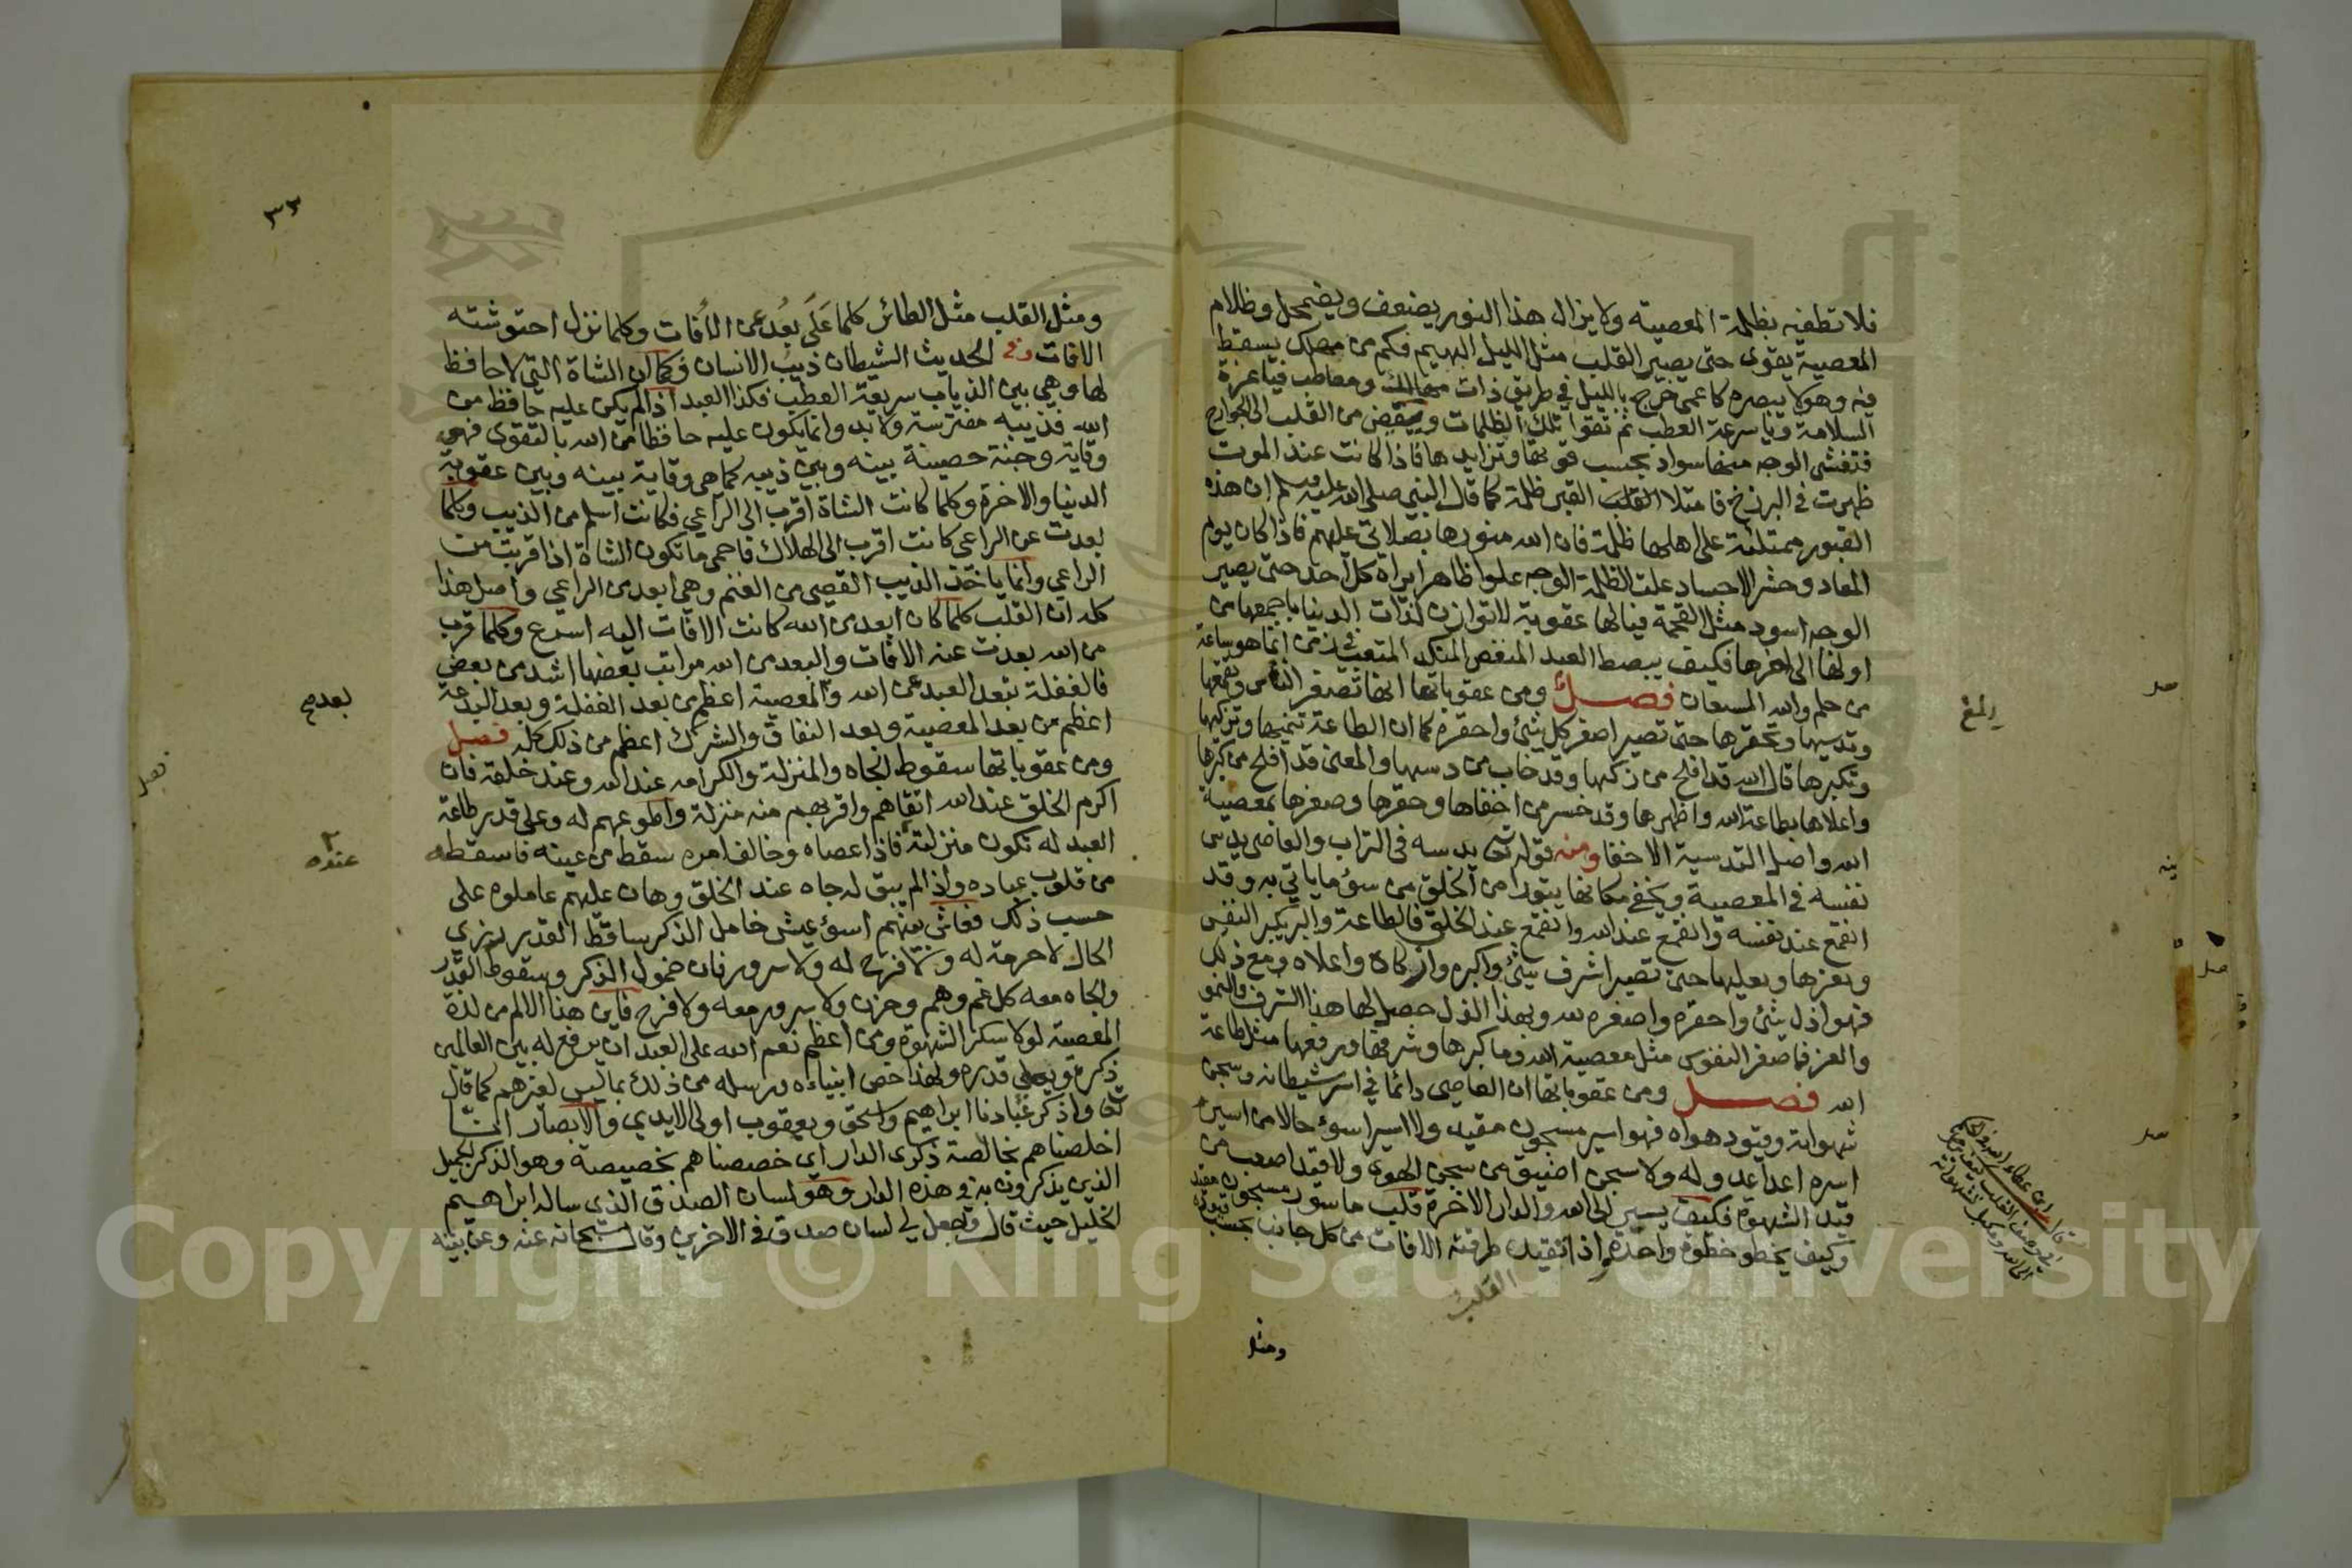 فلا تطفيه بظلمة المعصية ولا يزال هذا النور يضعف ويضمحل وظلام
المعصية يقوى حتى يصير القلب مثل الليل البهيم فكم من مهلك يسقط
فيه وهو لا يبصره كاعمى خرج بالليل في طريق ذات مهالك ومعاطب فيا عزة
السلامة ويا سرعة العطب ثم تقوا تلك الظلمات وتفيض من القلب الى الجوارح
فتغشى الوجه منها سواد بحسب قوتها وتزايدها فاذا كانت عند الموت
ظهرت في البرزخ فامتلا القلب القبر ظلمة كما قال النبي صلى الله عليه وسلم ان هذه
القبور ممتلئة على اهلها ظلمة فان الله منورها بصلاتي عليهم فاذا كان يوم
المعاد وحشر الاجساد علت الظلمة الوجه علوا ظاهرا يراه كل احد حتى يصير
الوجه اسود مثل الفحمة فيا لها عقوبة لا توازن لذات الدنيا باجمعها من
اولها الى اخرها فكيف يبسط العبد المنغص المنكد المتعب في زمن انما هو ساعة
من حلم والله المستعان فصل ومن عقوباتها انها تصغر النفس وتقمعها
وتدسيها وتحقرها حتى تصير اصغر كل شئ واحقره كما ان الطاعة تنميها وتزكيها
وتكبرها قال الله قد افلح من زكيها وقد خاب من دسيها والمعنى قد افلح من كبرها
واعلاها بطاعة الله واظهرها وقد خسر من اخفاها وحقرها وصغرها بمعصية
الله واصل التدسية الاخفا ومنه قوله تعالى يدسه في التراب والعاصي يدس
نفسه في المعصية ويخفي مكانها يتوارا من الخلق من سوء ما ياتي به وقد
انقمع عند نفسه وانقمع عند الله وانقمع عند الخلق فالطاعة والبر تكبر النفس
وتعزها وتعليها حتى تصير اشرف شئ واكبره وازكاه واعلاه ومع ذلك
فهو اذل شئ واحقره واصغره لله وبهذا الذل حصل لها هذا الشرف والنمو
والعز فما صغر النفوس مثل معصية الله وما كبرها وشرفها ورفعها مثل طاعة
الله فصل ومن عقوباتها ان العاصي دائما في اسر شيطانه وسجن
شهواته وقيود هواه فهو اسير مسجون مقيد ولا اسير اسوء حالا من اسير
اسره اعدا عدوله ولا سجن اضيق من سجن الهوى ولا قيد اصعب من
قيد الشهوة فكيف يسير الى الله والدار الاخرة قلب ماسور مسجون مقيد
وكيف يخطو خطوة واحدة واذا تقيد طرقته الافات من كل جانب بحسب قيوده
القلب
ومثل
ومثل القلب مثل الطائر كلما على بعد عن الافات وكلما نزل احتوشته
الافات وفي الحديث الشيطان ذيب الانسان وكما ان الشاة التي لا حافظ
لها وهي بين الذياب سريعة العطب فكذا العبد اذا لم يكن عليه حافظ من
الله فذيبه مفترسه ولا بد وانما يكون عليه حافظا من الله بالتقوى فهي
وقاية وجنة حصينة بينه وبين ذيبه كما هي وقاية بينه وبين عقوبة
الدنيا والاخرة وكلما كانت الشاة اقرب الى الراعي فكانت اسلم من الذيب وكلما
بعدت عن الراعي كانت اقرب الى الهلاك فاحمى ما تكون الشاة اذا قربت من
الراعي وانما ياخذ الذيب القصي من الغنم وهي ابعد من الراعي واصل هذا
كله ان القلب كلما كان ابعد من الله كانت الافات اليه اسرع وكلما قرب
من الله بعدت عنه الافات والبعد من الله مراتب بعضها اشد من بعض
فالغفلة تبعد العبد عن الله والمعصية اعظم من بعد الغفلة وبعد البدعة
اعظم من بعد المعصية وبعد النفاق والشرك اعظم من ذلك كله فصل
ومن عقوباتها سقوط الجاه والمنزلة والكرامة عند الله وعند خلقه فان
اكرم الخلق عند الله اتقاهم واقربهم منه منزلة واطوعهم له وعلى قدر طاعة
العبد له تكون منزلته فاذا عصاه وخالف امره سقط من عينه فاسقطه
من قلوب عباده واذا لم يبق له جاه عند الخلق وهان عليهم عاملوه على
حسب ذلك فعاش بينهم اسوء عيش خامل الذكر ساقط القدر زري
الحال لا حرمة له ولا فرح له ولا سرور فان خمول الذكر وسقوط القدر
والجاه معه كل غم وهم وحزن ولا سرور معه ولا فرح فاين هذا الالم من لذة
المعصية لولا سكر الشهوة ومن اعظم نعم الله على العبد ان يرفع له بين العالمين
ذكره ويعلي قدره ولهذا خص انبياءه ورسله من ذلك بما ليس لغيرهم كما قال
تعالى واذكر عبادنا ابراهيم واسحق ويعقوب اولى الايدي والابصار انا
اخلصناهم بخالصة ذكرى الدار اي خصصناهم بخصيصة وهو الذكر الجميل
الذين يذكرون به في هذه الدار وهو لسان الصدق الذي ساله ابراهيم
الخليل حيث قال واجعل لي لسان صدق في الاخرين وقال سبحانه عنه وعن بنيه
٣٣
بعد صح
عنده